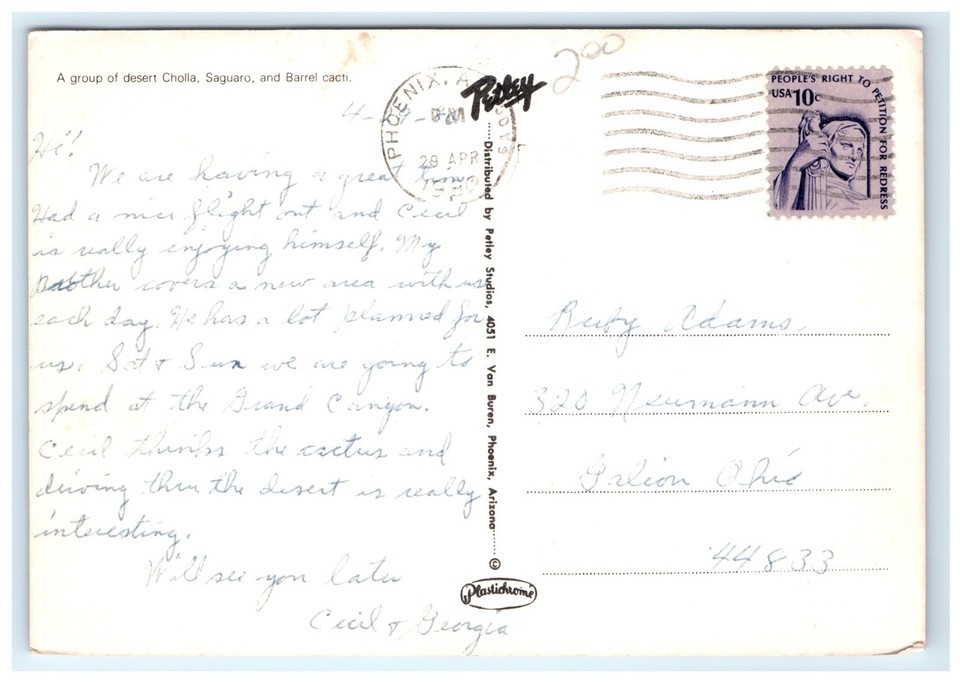 A group of desert Cholla, Saguaro, and Barrel cacti.
200
PHOENIX, A
PM
29 APR
Petley
PEOPLE'S RIGHT TO PETITION FOR REDRESS
USA 10c
Hi!
We are having a great time
Had a nice flight out and Cecil
is really enjoying himself. My
Brother covers a new area with us
each day. He has a lot planned for
us. Sat & Sun we are going to
spend at the Grand Canyon.
Cecil thinks the cactus and
driving thru the desert is really
interesting.
Will see you later
Cecil & Georgia
Distributed by Petley Studios, 4051 E. Van Buren, Phoenix, Arizona
©
Plastichrome
Ruby Adams.
320 Neumann Ave.
Galion Ohio
44833